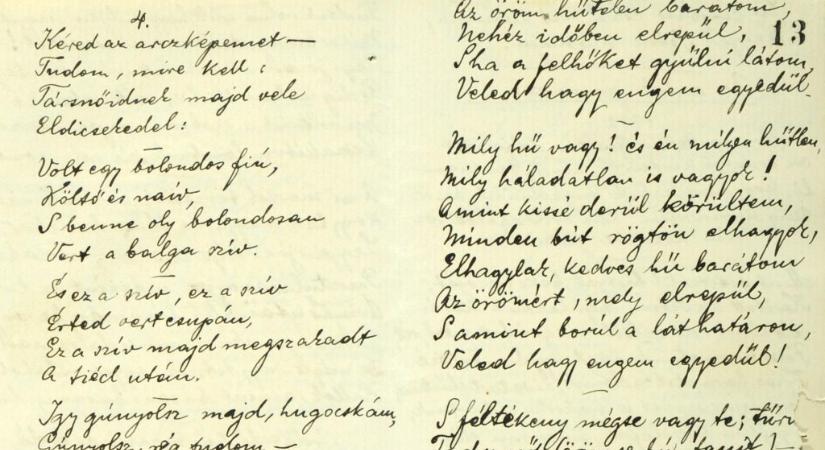 4.
Kéred az arczképemet —
Tudom, mire kell:
Társnőidnek majd vele
Eldicsekedel:
Volt egy bolondos fiú,
Költő és naív,
S benne oly bolondosan
Vert a balga szív.
És ez a szív, ez a szív
Érted vert csupán,
Ez a szív majd megszakadt
A tiéd után.
Igy gúnyolsz majd, hugocskám,
Gúnyolsz, tudom —
13
Az öröm, hűtelen barátom,
Nehéz időben elrepül,
S ha a felhőket gyűlni látom,
Veled hagy engem egyedül.
Mily hű vagy! És én milyen hűtlen,
Mily háladatlan is vagyok!
Amint kissé derűl körültem,
Minden bút rögtön elhagyok,
Elhagylak, kedves hű barátom
Az örömért, mely elrepül,
S amint borúl a láthatáron,
Veled hagy engem egyedül!
S féltékeny mégse vagy te; tűri